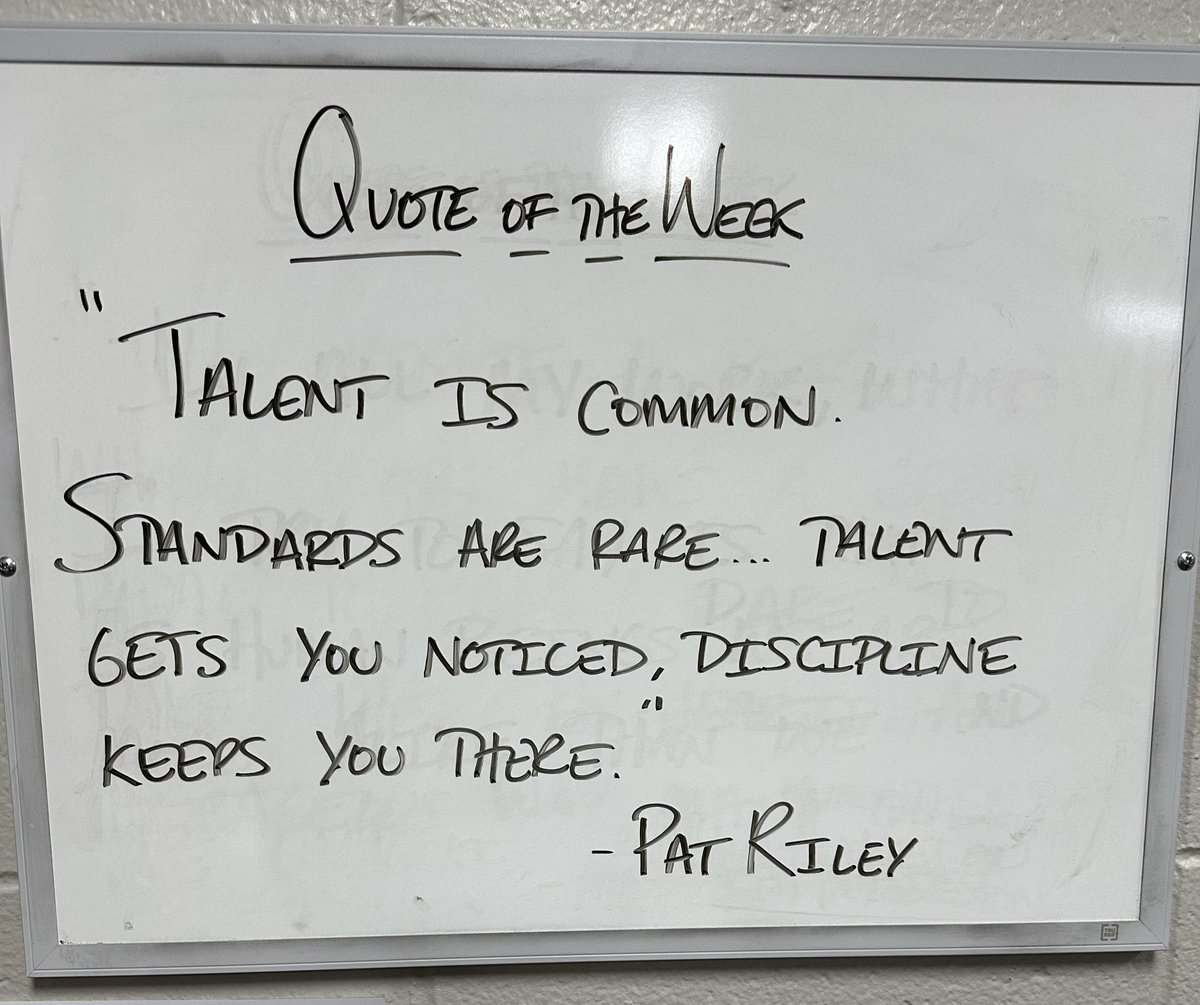 QUOTE OF THE WEEK
"TALENT IS COMMON.
STANDARDS ARE RARE... TALENT
GETS YOU NOTICED, DISCIPLINE
KEEPS YOU THERE."
- PAT RILEY
TRU RED